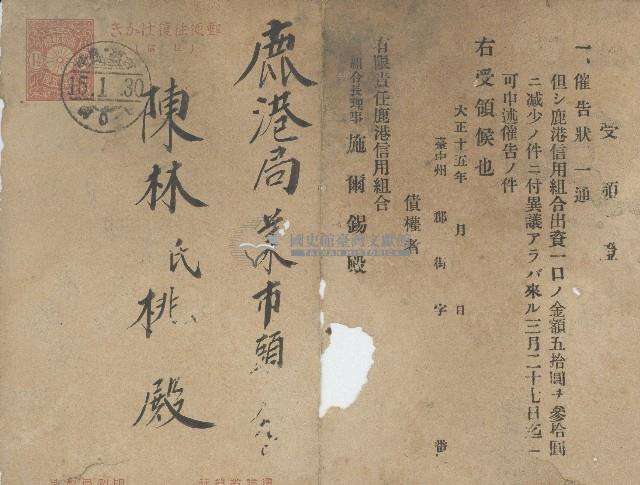 受領證
一、催告狀 一通
但シ鹿港信用組合出資一口ノ金額五拾圓ヲ參拾圓
ニ減少ノ件ニ付異議アラバ來ル三月二十七日迄ニ
可申述催告ノ件
右受領候也
大正十五年 月 日
臺中州 郡 街 字 番
債權者
有限責任鹿港信用組合
組合長理事 施爾錫殿
鹿港局菜市頭
陳林氏桃殿
郵便往復はがき
15.1.30
國史館臺灣文獻館
TAIWAN HISTORICA